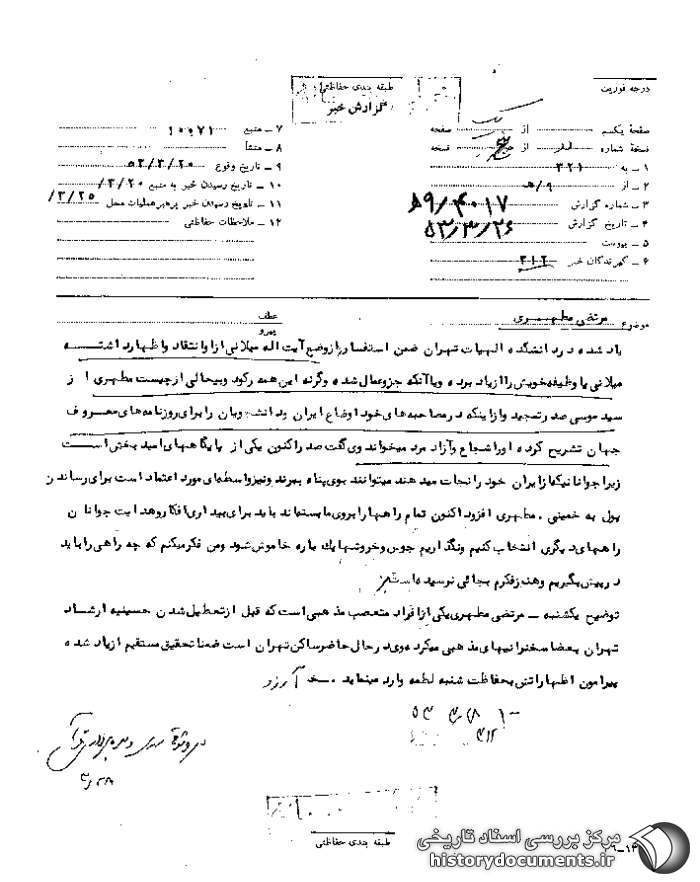 درجه فوریت
طبقه بندی حفاظتی
گزارش خبر
صفحهٔ یکم از یک صفحه
نسخهٔ شماره از پنج نسخه
۱ ـ به ۳۲۱
۲ ـ از ۹/ه
۳ ـ شماره گزارش ۵۹/۴۰۱۷
۴ ـ تاریخ گزارش ۵۳/۳/۲۶
۵ ـ پیوست
۶ ـ گیرندگان خبر ۳۱۲
۷ ـ منبع ۱۰۰۷۱
۸ ـ منشأ
۹ ـ تاریخ وقوع ۵۳/۳/۲۰
۱۰ ـ تاریخ رسیدن خبر به منبع ۳/۲۰/
۱۱ ـ تاریخ رسیدن خبر برهبر عملیات محل ۳/۲۵/
۱۲ ـ ملاحظات حفاظتی
موضوع مرتضی مطهری
عطف
پیرو
یاد شده در دانشکده الهیات تهران ضمن استفسار از وضع آیت اله میلانی از او انتقاد و اظهار داشته
میلانی یا وظیفه خویش را از یاد برده و یا آنکه جزو عمال شده وگرنه این همه رکود و بیحالی از چیست مطهری از
سید موسی صدر تمجید و از اینکه در مصاحبه های خود اوضاع ایران و دانشجویان را برای روزنامه های معروف
جهان تشریح کرده او را شجاع و آزاد مرد میخواند وی گفت صدر اکنون یکی از پایگاههای امید بخشی است
زیرا جوانانیکه از ایران خود را نجات میدهند میتوانند بوی پناه ببرند و نیز واسطه ای مورد اعتماد است برای رساندن
پول به خمینی . مطهری افزود اکنون تمام راهها را بروی ما بسته اند باید برای بیداری افکار و هدایت جوانان
راههای دیگری انتخاب کنیم و نگذاریم جوش و خروشها یك باره خاموش شود و من فکر میکنم که چه راهی را باید
در پیش بگیریم و هنوز فکرم بجائی نرسیده است
توضیح یکشنبه ـ مرتضی مطهری یکی از افراد متعصب مذهبی است که قبل از تعطیل شدن حسینیه ارشاد
تهران بعضا سخنرانیهای مذهبی میکرده وی در حال حاضر ساکن تهران است ضمنا تحقیق مستقیم از یاد شده
پیرامون اظهاراتش بحفاظت شنبه لطمه وارد مینماید .
آرزو
۵۳
۳۱۲
۳/۲۸
طبقه بندی حفاظتی
مرکز بررسی اسناد تاریخی
historydocuments.ir